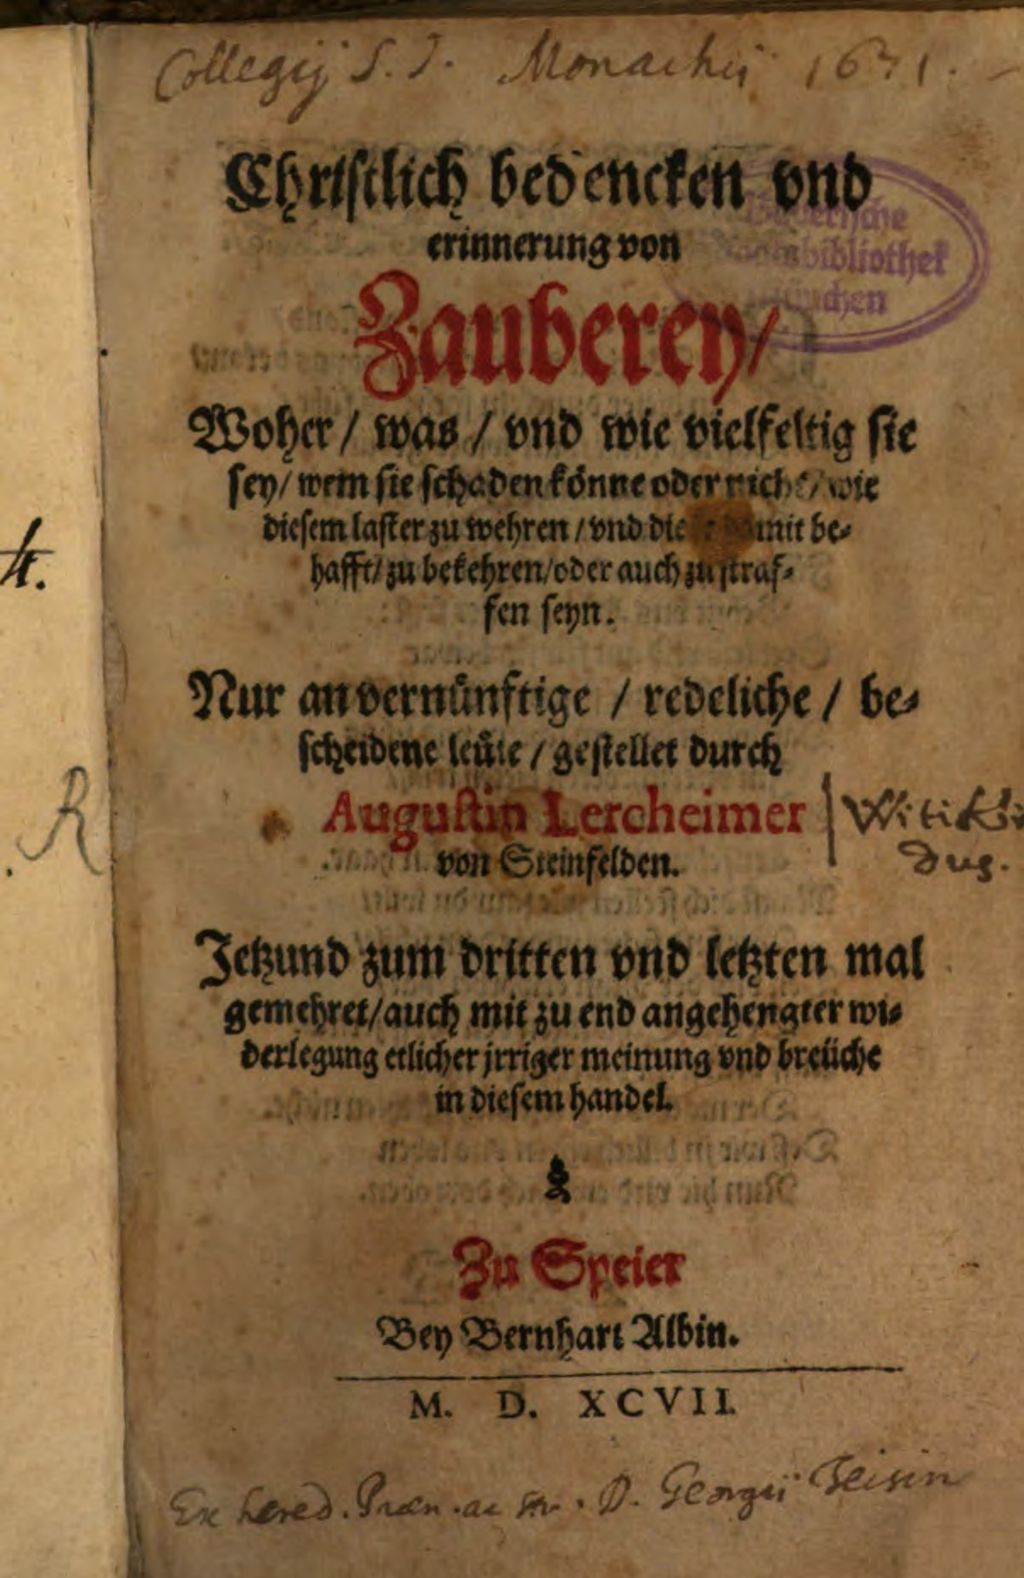 Collegij S. J. Monachij 1631.
Christlich bedencken vnd
erinnerung von
Zauberey/
Bayerische
Staatsbibliothek
München
Woher / was / vnd wie vielfeltig sie
sey / wem sie schaden könne oder nicht / wie
diesem laster zu wehren / vnd die so damit be⸗
hafft / zu bekehren / oder auch zu straf⸗
fen seyn.
4.
Nur an vernünftige / redeliche / be⸗
scheidene leüte / gestellet durch
R
Augustin Lercheimer
von Steinfelden.
Jetzund zum dritten vnd letzten mal
gemehret / auch mit zu end angehengter wi⸗
derlegung etlicher jrriger meinung vnd breüche
in diesem handel.
Zu Speier
Bey Bernhart Albin.
M. D. XCVII.
Ex hered. D. Georgii